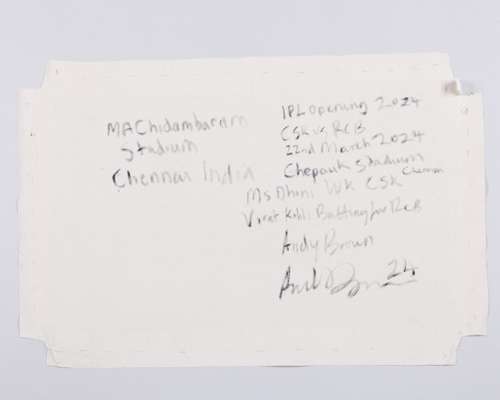 MA Chidambaram
Stadium
Chennai India
IPL Opening 2024
CSK vs RCB
22nd March 2024
Chepauk Stadium
Chennai
MS Dhoni WK CSK
Virat Kohli Batting for RCB
Andy Brown
24